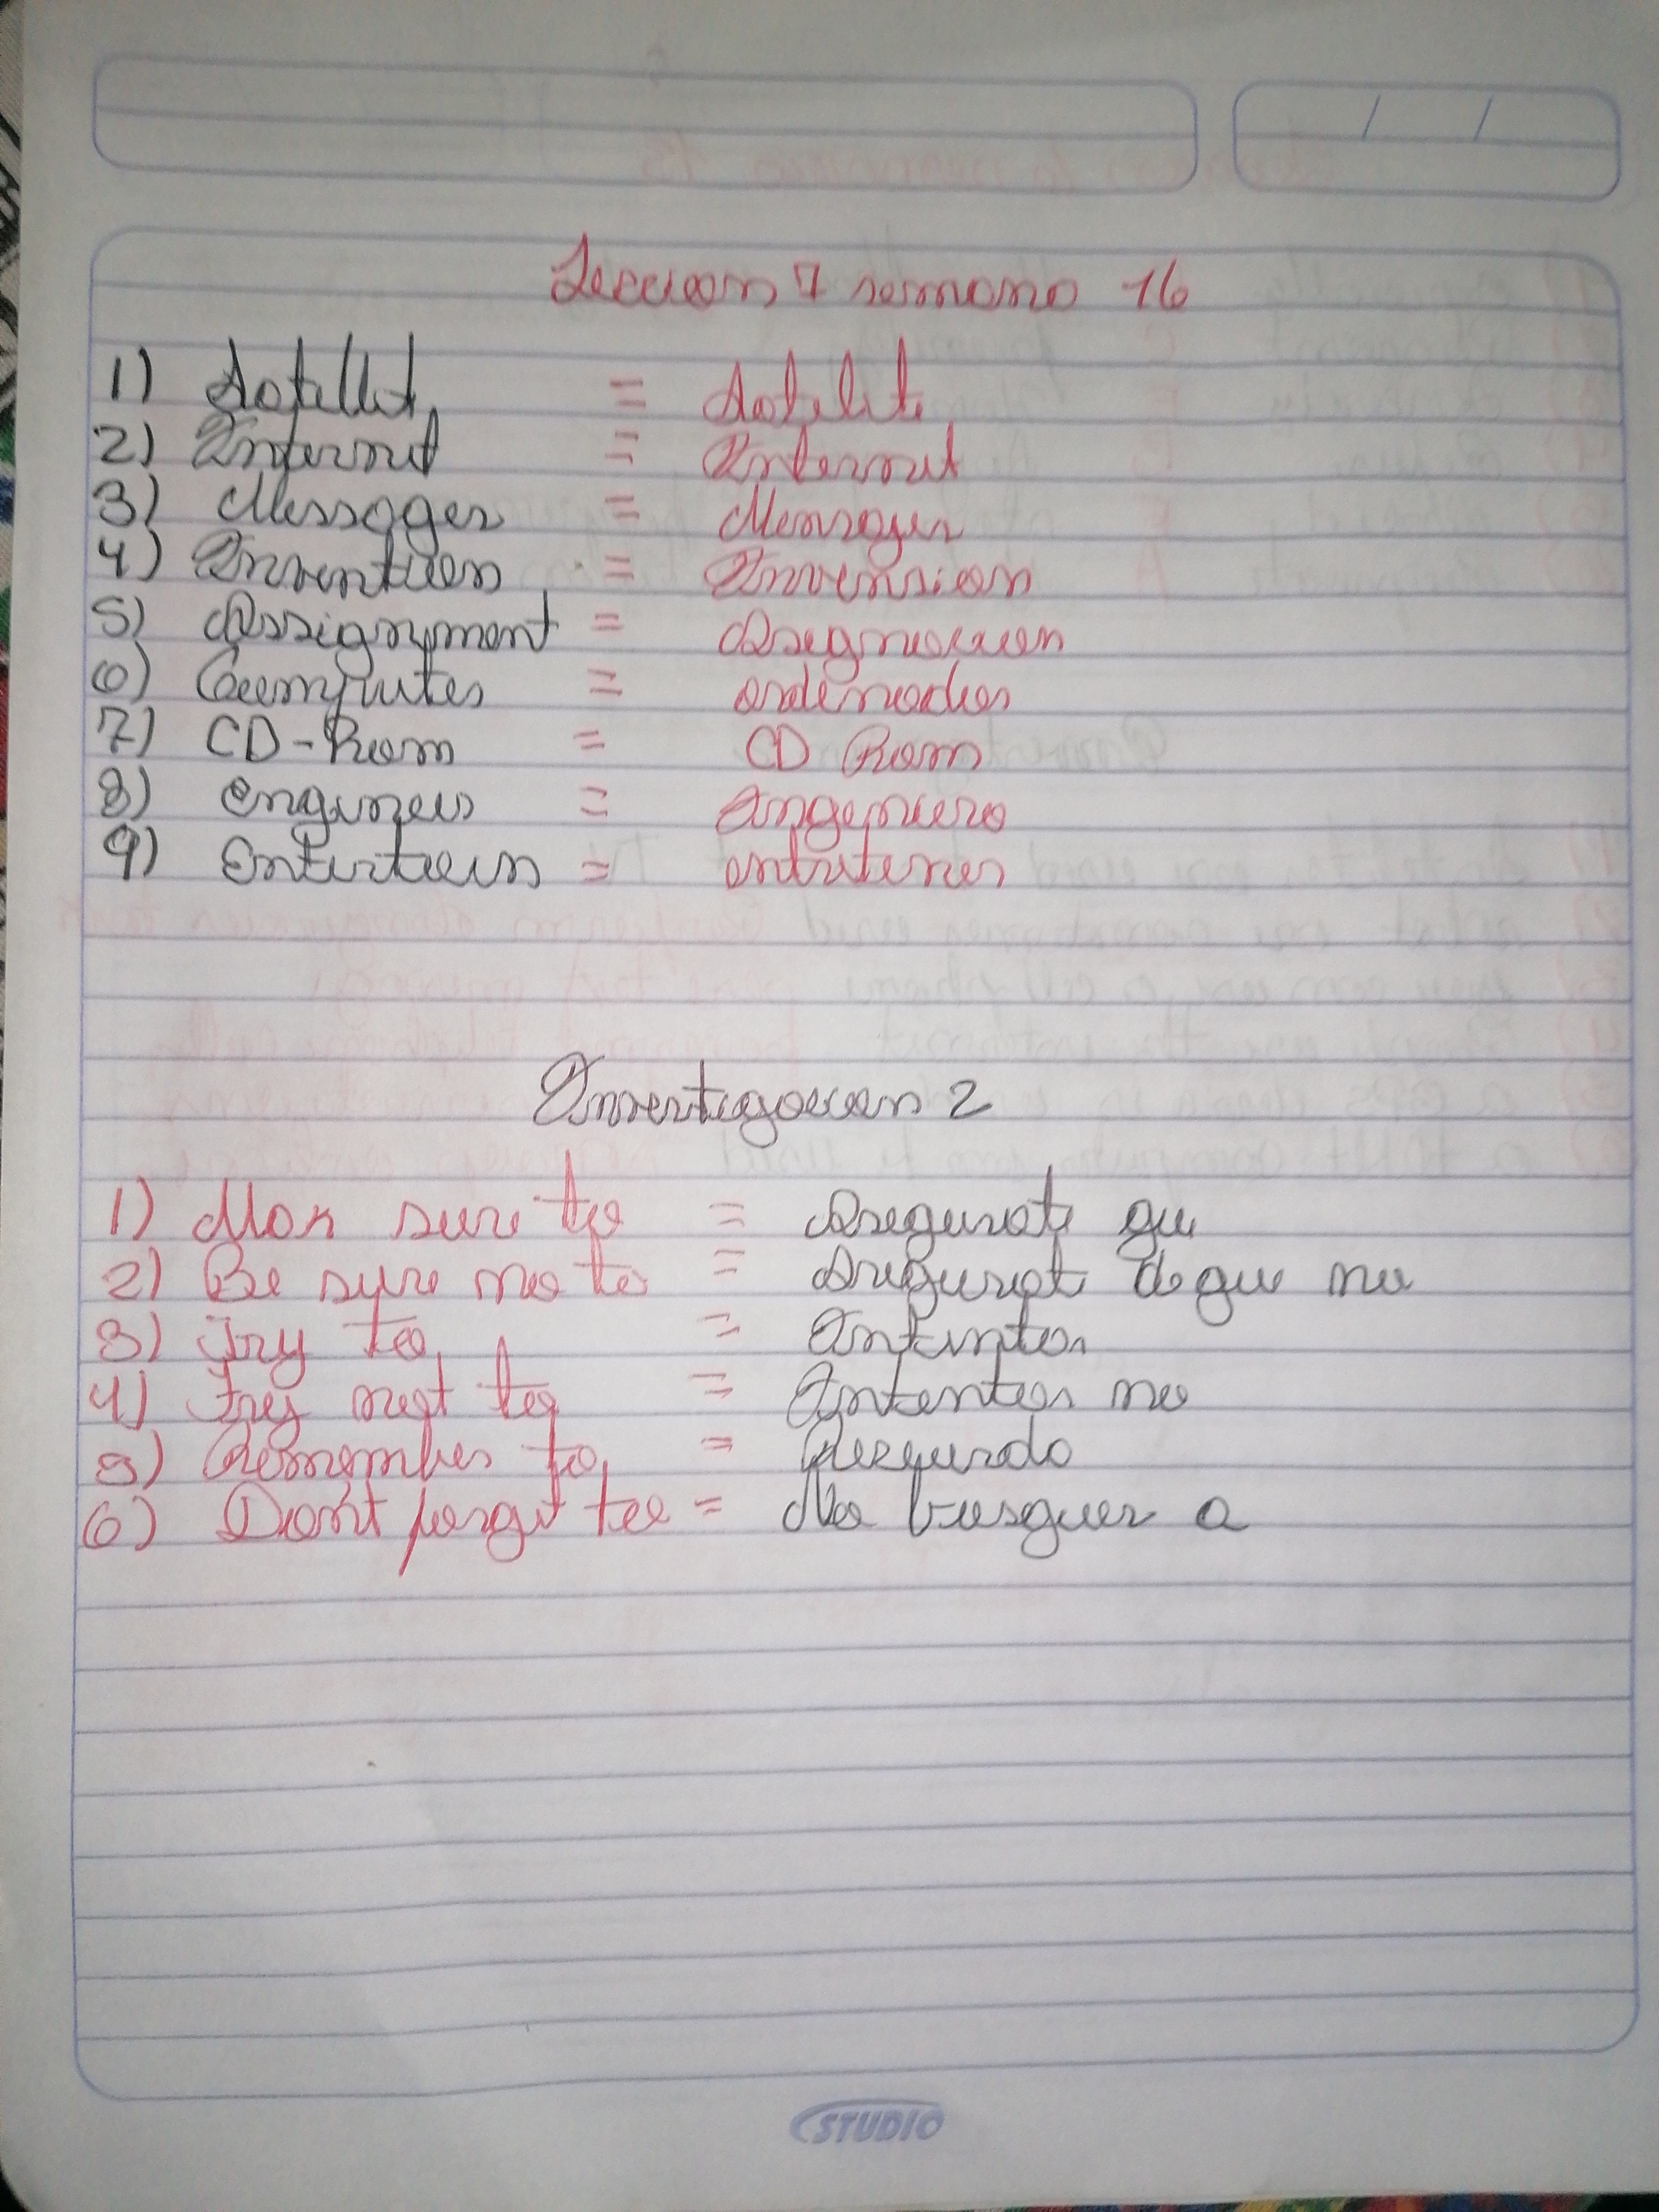 Leccion 7 semana 16
1) Satellit = Satelite
2) Internet = Internet
3) Messager = Mensajer
4) Invention = Invension
5) Assignment = Asignacion
6) Computer = ordenador
7) CD-Rom = CD Rom
8) engineer = Ingeniero
9) Entertain = entretener
Investigacion 2
1) Mak sure to = Asegurate que
2) Be sure no to = Asegurate de que no
3) Try to = Intentar
4) Try not to = Intentar no
5) Remember to = Recuerda
6) Don't forget to = No busquer a
STUDIO